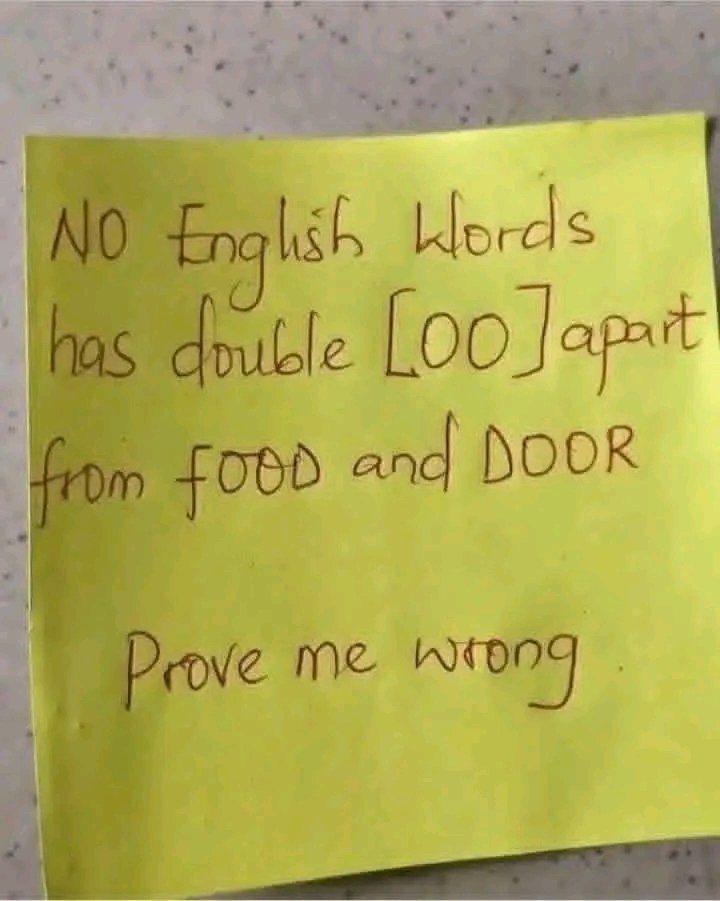 NO English Words
has double [OO] apart
from FOOD and DOOR
Prove me wrong